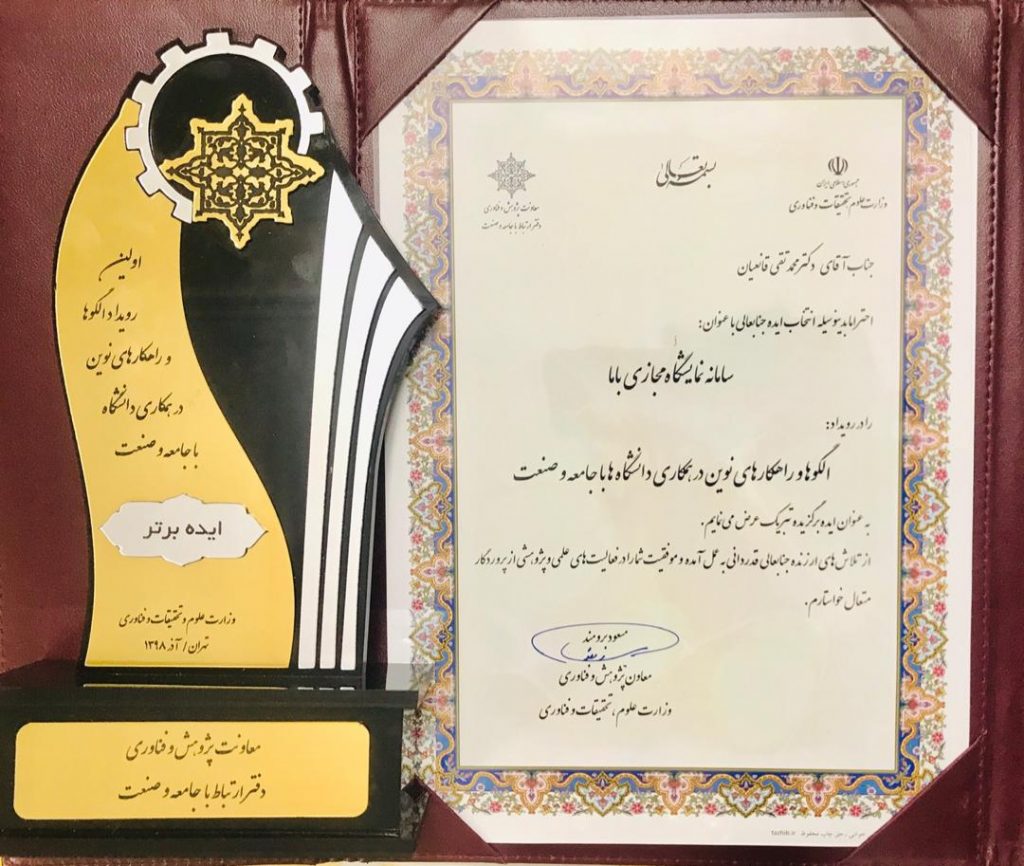 اولین
رویداد الگوها
و راهکارهای نوین
در همکاری دانشگاه
با جامعه و صنعت
ایده برتر
وزارت علوم و تحقیقات و فناوری
تهران / آذر ۱۳۹۸
معاونت پژوهش و فناوری
دفتر ارتباط با جامعه و صنعت
بسمه تعالی
جمهوری اسلامی ایران
وزارت علوم تحقیقات و فناوری
معاونت پژوهش و فناوری
دفتر ارتباط با جامعه و صنعت
جناب آقای دکتر محمد تقی قانعیان
احتراما بدینوسیله انتخاب ایده جنابعالی با عنوان:
سامانه نمایشگاه مجازی باما
را در رویداد:
الگوها و راهکارهای نوین در همکاری دانشگاه ها با جامعه و صنعت
به عنوان ایده برگزیده تبریک عرض می نمایم.
از تلاش های ارزنده جنابعالی قدردانی به عمل آمده و موفقیت شما را در فعالیت های علمی و پژوهشی از پروردگار
متعال خواستارم.
مسعود برومند
معاون پژوهش و فناوری
وزارت علوم، تحقیقات و فناوری
حق چاپ محفوظ tazhib.ir